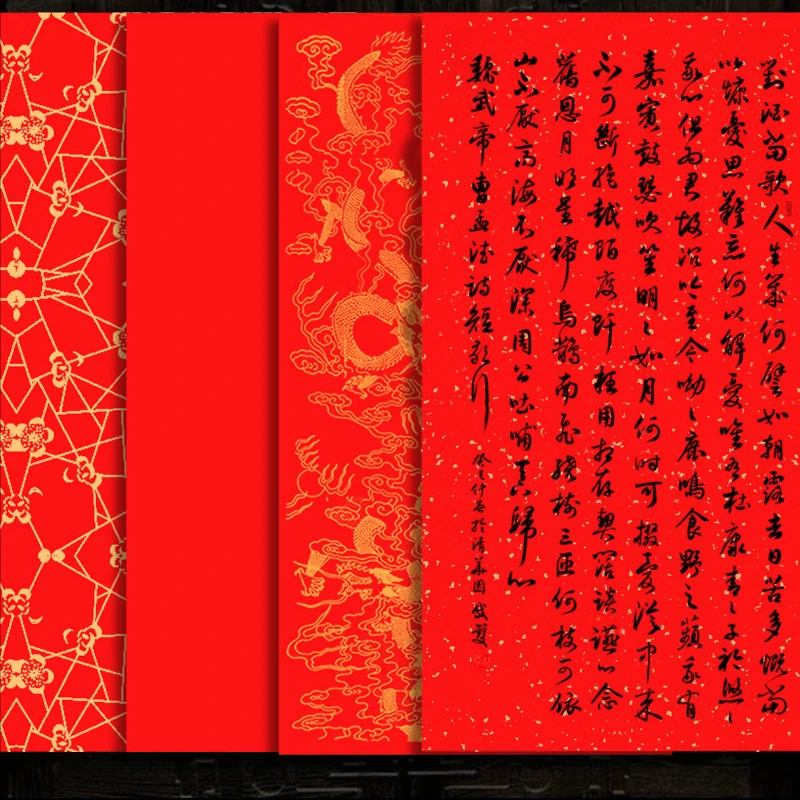 對酒當歌人生幾何譬如朝露去日苦多慨當
以慷憂思難忘何以解憂唯有杜康青〻子衿悠〻
我心但為君故沉吟至今呦〻鹿鳴食野之蘋我有
嘉賓鼓瑟吹笙明〻如月何時可掇憂從中來
不可斷絕越陌度阡枉用相存契闊談讌心念
舊恩月明星稀烏鵲南飛繞樹三匝何枝可依
山不厭高海不厭深周公吐哺天下歸心
魏武帝曹孟德詩短歌行
仲春於清華園